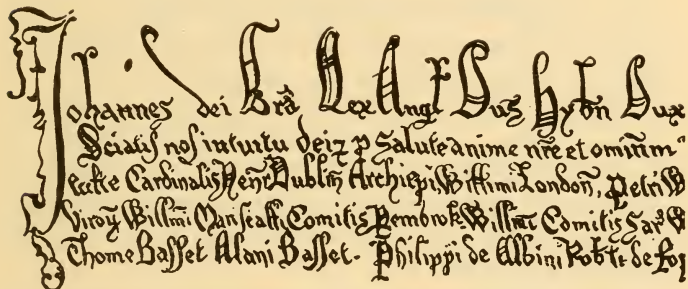 Johannes dei Grã Rex Angł Dñs Hybñ Dux
Sciatis nos intuitu dei ⁊ p salute anime nr̃e et omnium
eccłe Cardinalis Henr̃ Dublin̄ Archiepi, Wiłłmi London̄, Petri W
Viroꝝ Willmi Marscałłi Comitis Pembrok, Willmi Comitis Sar̃ W
Thome Basset Alani Basset. Philippi de Albini Robti de Rop